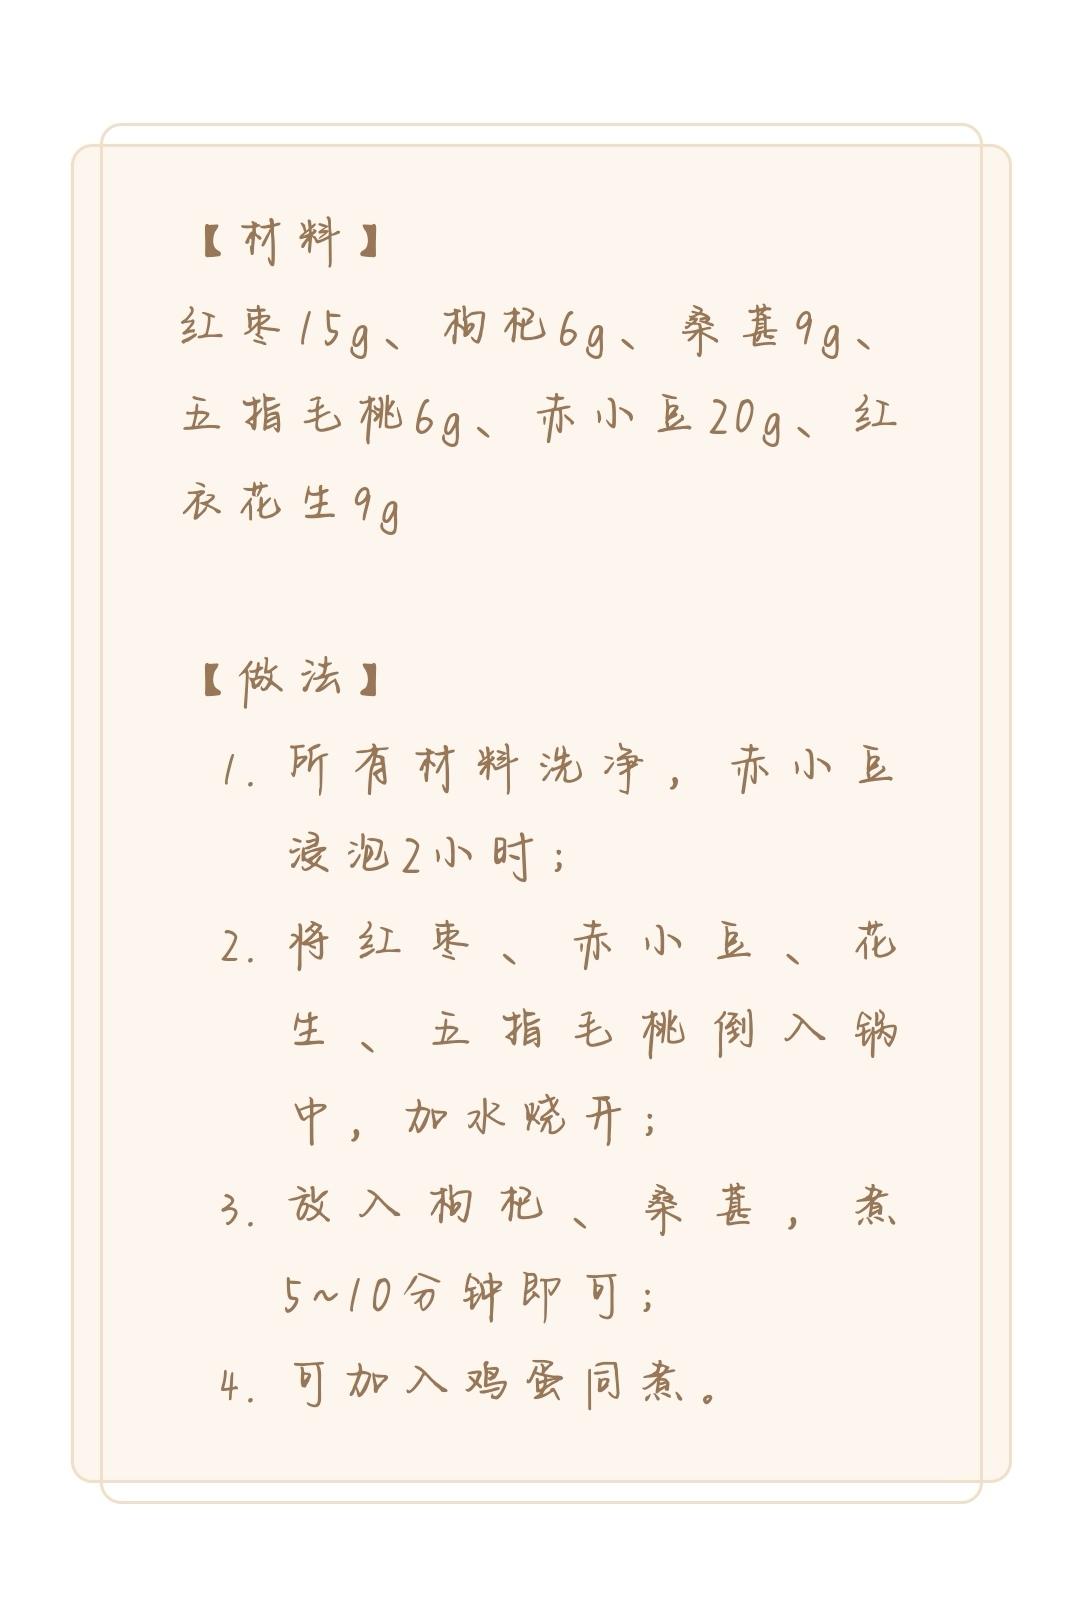 【材料】
红枣15g、枸杞6g、桑葚9g、
五指毛桃6g、赤小豆20g、红
衣花生9g
【做法】
1. 所有材料洗净，赤小豆
浸泡2小时；
2. 将红枣、赤小豆、花
生、五指毛桃倒入锅
中，加水烧开；
3. 放入枸杞、桑葚，煮
5~10分钟即可；
4. 可加入鸡蛋同煮。